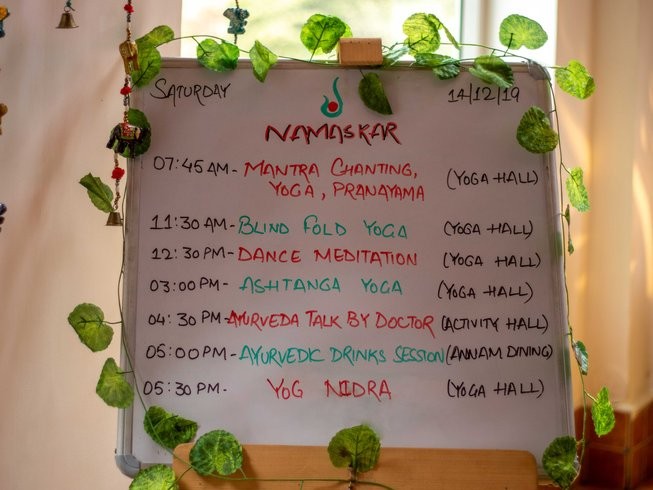 SATURDAY 14/12/19
NAMASKAR
07:45 AM- MANTRA CHANTING, (YOGA HALL)
YOGA, PRANAYAMA
11:30 AM- BLIND FOLD YOGA (YOGA HALL)
12:30 PM- DANCE MEDITATION (YOGA HALL)
03:00 PM- ASHTANGA YOGA (YOGA HALL)
04:30 PM- AYURVEDA TALK BY DOCTOR (ACTIVITY HALL)
05:00 PM- AYURVEDIC DRINKS SESSION (ANNAM DINING)
05:30 PM- YOG NIDRA (YOGA HALL)